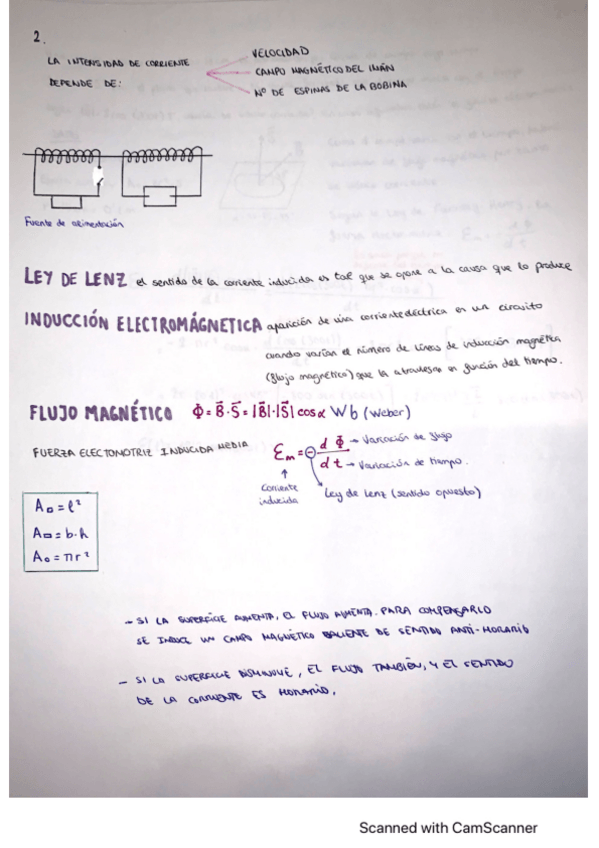 2.
LA INTENSIDAD DE CORRIENTE
DEPENDE DE:
VELOCIDAD
CAMPO MAGNÉTICO DEL IMÁN
Nº DE ESPINAS DE LA BOBINA
Fuente de alimentación
LEY DE LENZ el sentido de la corriente inducida es tal que se opone a la causa que lo produce
INDUCCIÓN ELECTROMÁGNETICA aparición de una corriente eléctrica en un circuito
cuando varían el número de líneas de inducción magnética
(flujo magnético) que la atraviesan en función del tiempo.
FLUJO MAGNÉTICO Φ = B⃗·S⃗ = |B⃗|·|S⃗| cos α Wb (Weber)
FUERZA ELECTOMOTRIZ INDUCIDA MEDIA
Ɛm = - d Φ → Variación de flujo
d t → Variación de tiempo.
Corriente
inducida
Ley de Lenz (sentido opuesto)
A□ = l²
A▭ = b·h
A○ = πr²
- SI LA SUPERFICIE AUMENTA, EL FLUJO AUMENTA. PARA COMPENSARLO
SE INDUCE UN CAMPO MAGNÉTICO SALIENTE DE SENTIDO ANTI-HORARIO
- SI LA SUPERFICIE DISMINUYE, EL FLUJO TAMBIÉN, Y EL SENTIDO
DE LA CORRIENTE ES HORARIO.
Scanned with CamScanner